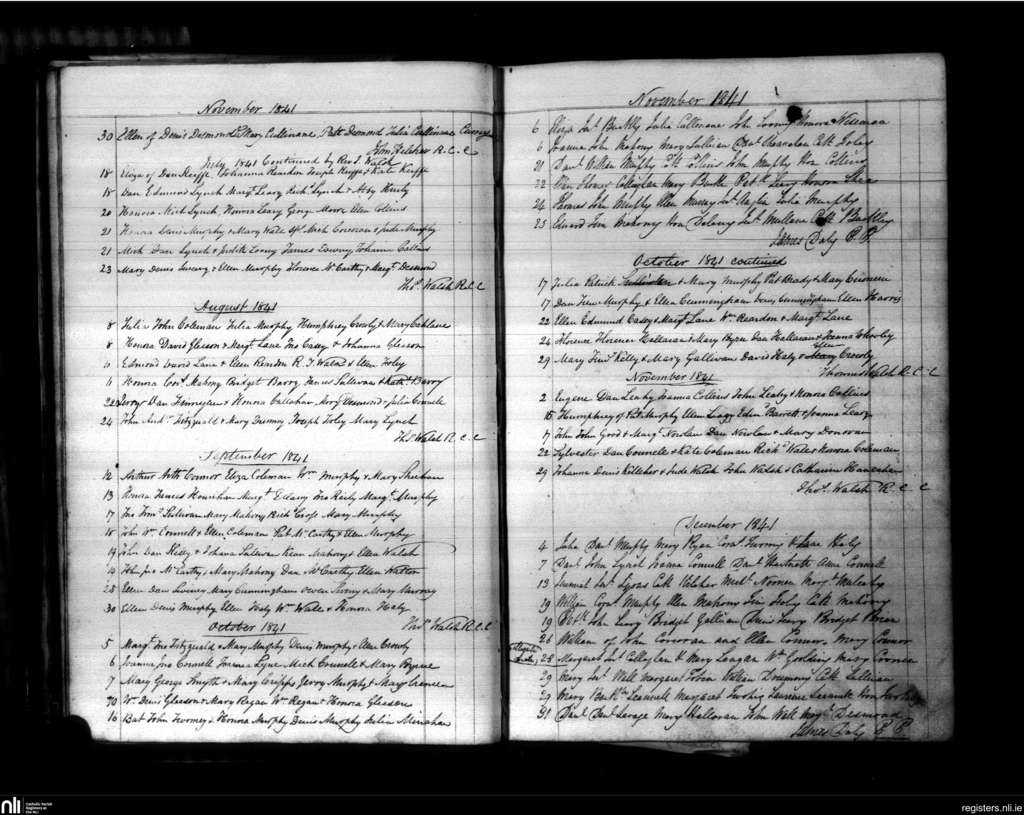 November 1841
30 Ellen of Denis Desmond & Mary Cullinane Patt Desmond Julia Cullinane
John Kelcher R.C.C
July 1841 Continued by Rev J. Walsh
18 Eliza of Dan Keeffe Johanna Reardon Joseph Keeffe & Kate Keeffe
18 Dan Edmond Lynch Margt Leary Rich Lynch & Aby Healy
20 Honora Mich Lynch Honora Leary George Moore Ellen Collins
21 Honora Denis Murphy & Mary Wall Mich Corcoran & Murphy
21 Mich Dan Lynch & Judith Looney James Johanna Collins
23 Mary Denis Sweeny & Ellen Murphy Florence McCarthy & Margt Desmond
Thos Walsh R.C.C
August 1841
8 Julia John Coleman Julia Murphy Humphrey Crowly & Mary
8 Honora David Gleeson & Margt Lane Jno Casey & Johanna Gleeson
11 Edmond David Lane & Ellen Reardon R. J. Walsh & Ellen Foley
11 Honora Cors Mahony Bridget Barry James Sullivan & Kate Barry
22 Jerry Dan Finnegan & Honora Callahan Jerry Desmond & Julia Connell
24 John Andw Fitzgerald & Mary Twomy Joseph Foley Mary Lynch
Thos Walsh R.C.C
September 1841
12 Arthur Arth Connor Eliza Coleman Wm Murphy & Mary Sheehan
13 Honora Francis Hourihan Margt Jno Reily Margt Murphy
17 Jno Timy Sullivan Mary Mahony Rich Cross Mary Murphy
18 John Wm Connell & Ellen Coleman Pat McCarthy & Ellen Murphy
19 John Dan Kelly & Johana Sullivan Kean Mahony & Ellen Walsh
John Jas McCarthy & Mary Mahony Dan McCarthy Ellen Walton
28 Ellen Dan Sweeney Mary Cunningham Owen & Mary Murray
30 Ellen Denis Murphy Ellen Healy Wm Wade & Honora Healy
Thos Walsh R.C.C
October 1841
5 Margt Jno Fitzgerald & Mary Murphy Denis Murphy & Ellen Crowly
6 Joanna Jno Connell Joanna Lyne Mich Connell & Mary Byrne
7 Mary George Smyth & Mary Cripps Jerry Murphy & Mary Cremeen
10 Wm Denis Gleeson & Mary Regan Wm Regan & Honora Gleeson
10 Bat John Twomey & Honora Murphy Denis Murphy Julia Minahan
November 1841
6 Eliza Jas Buckly Julia Callenane John Looney Honora
6 Joanna John Mahony Mary Sullivan Danl Shanahan Cath Foley
21 Danl Willm Murphy Cath Collins John Murphy Hon Collins
22 Mary Burke Patk Leary Honora Shea
24 Thomas John Murphy Ellen Murray Julia Murphy
25 Edward Tim Mahony Hon Delany Jas Mullane Cath Buckley
James Daly P.P.
October 1841 continued
17 Julia Patrick Sullivan & Mary Murphy Pat Brady & Mary Cremeen
17 Dan Timy Murphy & Ellen Cunningham Denis Cunningham Ellen Harris
22 Ellen Edmund Casey & Margt Lane Wm Reardon & Margt Lane
26 Florence Florence Hallaran & Mary Byrne Dan Hallaran & Joana Crowley
29 Mary Timy Kelly & Mary Gallivan David Healy & Ellen Crowly
Thomas Walsh R.C.C
November 1841
2 Eugene Dan Leahy Joanna Collins John Leahy & Honora Collins
15 Humphrey of Pat Murphy Ellen Edmd Barrett & Joanna Leary
17 John John Good & Margt Nowlan Dan Nowlan & Mary Donovan
22 Sylvester Dan Connell & Kate Coleman Richd Wall & Honora Coleman
29 Johanna Denis Kelleher & Jude Walsh John Walsh & Catharine Hanrahan
Thos Walsh R.C.C
December 1841
4 John Danl Murphy Mary Ryan Corns Twomy & Jane Healy
7 Danl John Lynch Joanna Connell Danl Ellen Connell
13 Jeremiah Jas Lyons Cath Kelcher Michl Noonan Margt
19 William Corns Murphy Ellen Mahony Tim Healy Cath Mahony
19 Patk John Leary Bridget Gallivan Denis Leary Bridget Brien
26 William of John Corcoran and Ellen Connor Mary Connor
28 Margaret Jas Callaghan & Mary Leagan Wm Golding Mary Cronin
29 Mary Jas Wall Margaret Tobin William Drummy Cath Sullivan
29 Mary Margaret Twohig
31 Danl Danl Savage Mary Halloran John Wall Margt Desmond
James Daly P.P.
nli
Catholic Parish
Registers at
the NLI
registers.nli.ie